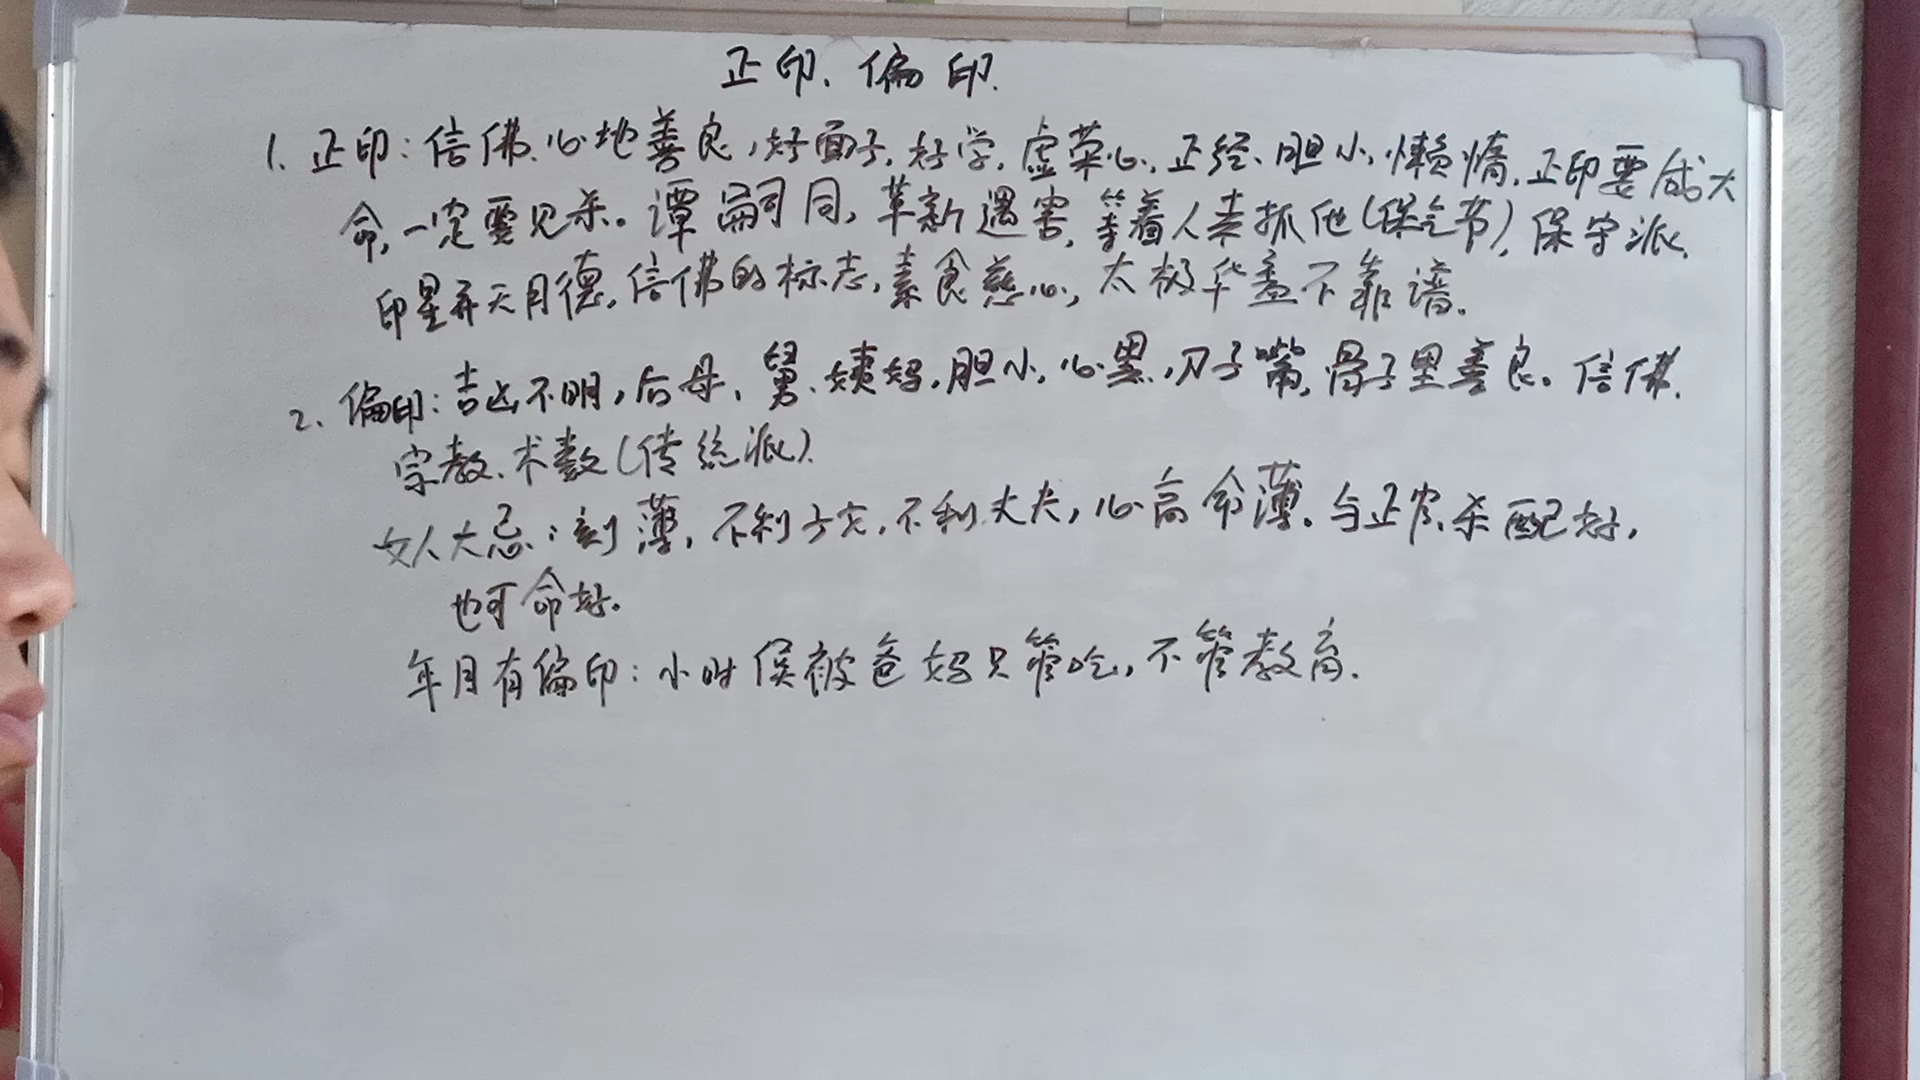 正印、偏印.
1. 正印：信佛、心地善良，好面子，好学，虚荣心，正经、胆小，懒惰，正印要成大
命，一定要见杀。谭嗣同，革新遇害，等着人来抓他(保气节)，保守派，
印星弄天月德，信佛的标志，素食慈心，太极华盖不靠谱。
2. 偏印：吉凶不明，后母、舅、姨妈，胆小，心黑，刀子嘴，骨子里善良。信佛，
宗教、术数(传统派)
女人大忌：刻薄，不利子女，不利丈夫，心高命薄。与正官、杀配好，
也可命好。
年月有偏印：小时侯被爸妈只管吃，不管教育.